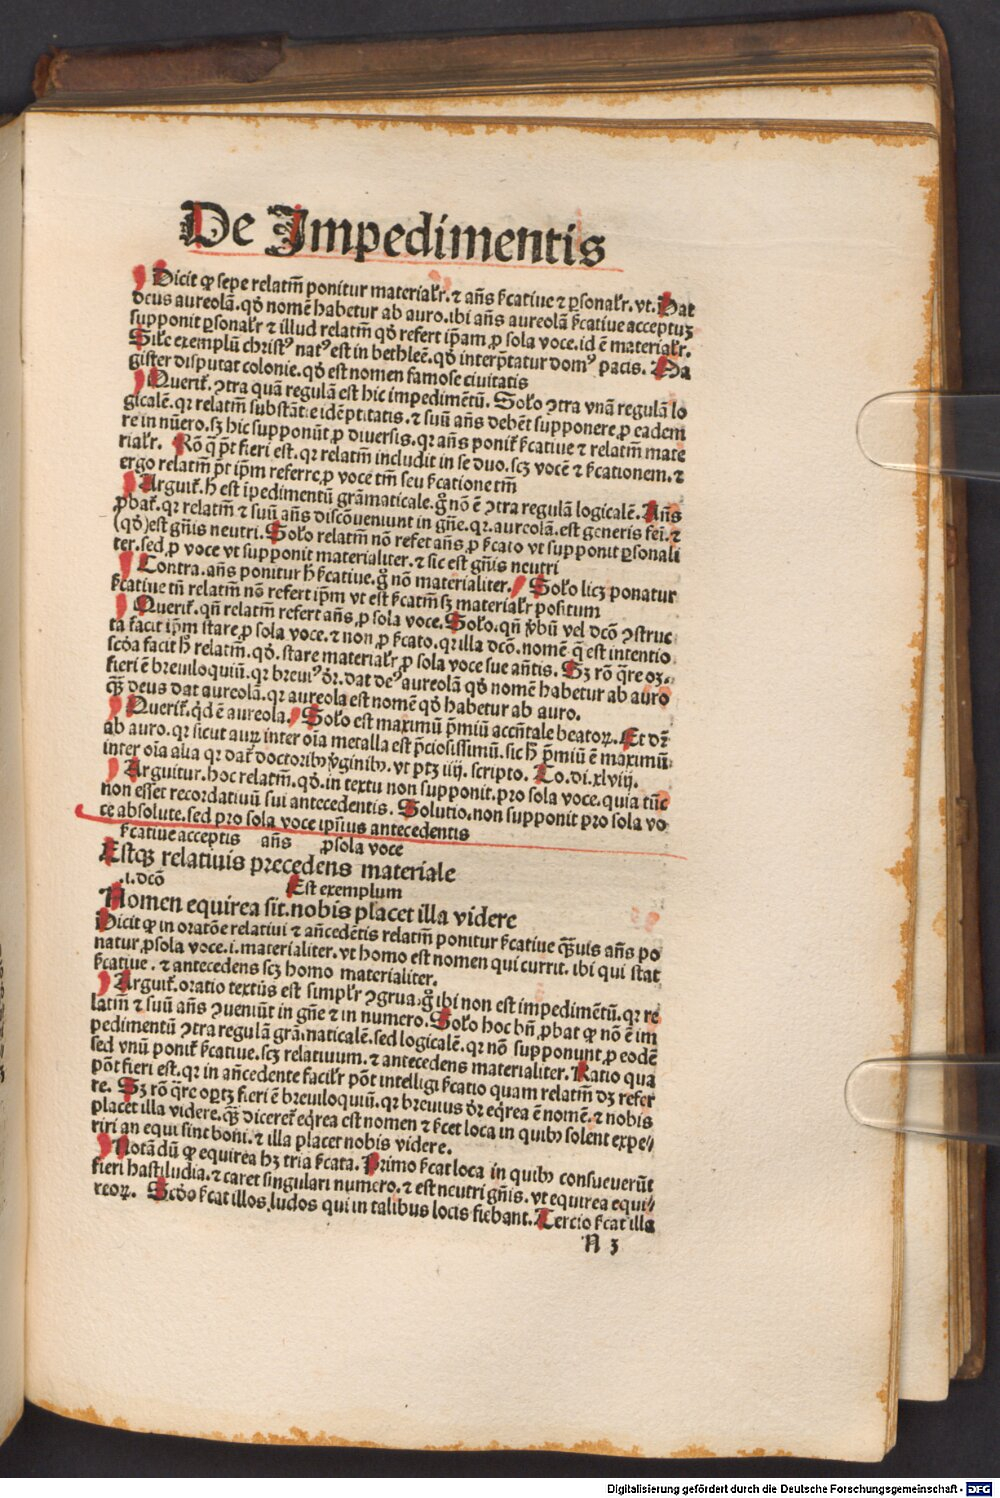 De Impedimentis
Dicit ꝙ sepe relatm̄ ponitur material'r. ⁊ an̄s s̄catiue ⁊ ꝑsonal'r. vt. Dat
deus aureolā. qđ nomē habetur ab auro. ibi an̄s aureolā s̄catiue acceptuꝫ
supponit ꝑsonal'r ⁊ illud relatm̄ qđ refert ip̄am ꝓ sola voce. id ē material'r.
Sil'e exemplū christꝰ natꝰ est in bethleē. qđ interp̄tatur domꝰ pacis. Ma
gister disputat colonie. qđ est nomen famose ciuitatis
Querit̄. ↄtra quā regulā est hic impedimētū. Sol'o ↄtra vnā regulā lo
gicalē. qꝛ relatm̄ substātie idēptitatis. ⁊ suū an̄s debēt supponere ꝓ eadem
re in nūero. sꝫ hic supponūt ꝓ diuersis. qꝛ an̄s ponit̄ s̄catiue ⁊ relatm̄ mate
rial'r. Rō q̄ p̄t fieri est. qꝛ relatm̄ includit in se duo. scꝫ vocē ⁊ s̄cationem. ⁊
ergo relatm̄ p̄t ip̄m referre ꝓ voce tm̄ seu s̄catione tm̄
Arguit̄. h̄ est īpedimentū grāmaticale. gͦ nō ē ↄtra regulā logicalē. An̄s
ꝓbat̄. qꝛ relatm̄ ⁊ suū an̄s discōueniunt in gn̄e. qꝛ. aureolā. est generis feī. ⁊
(qđ) est gn̄is neutri. Sol'o relatm̄ nō refet an̄s ꝓ s̄cato vt supponit ꝑsonali
ter. sed ꝓ voce vt supponit materialiter. ⁊ sic est gn̄is neutri
Contra. an̄s ponitur h̄ s̄catiue. gͦ nō materialiter. Sol'o licꝫ ponatur
s̄catiue tn̄ relatm̄ nō refert ip̄m vt est s̄catm̄ sꝫ material'r positum
Querit̄. qn̄ relatm̄ refert an̄s ꝓ sola voce. Sol'o. qn̄ v̄bū vel dcō ↄstruc
ta facit ip̄m stare ꝓ sola voce. ⁊ non ꝓ s̄cato. qꝛ illa dcō. nomē q̄ est intentio
scđa facit h̄ relatm̄. qđ. stare material'r ꝓ sola voce sue an̄tis. Sꝫ rō q̄re oꝫ.
fieri ē breuiloquiū. qꝛ breuiꝰ dr̄. dat deꝰ aureolā qđ nomē habetur ab auro
q̄ꝫ deus dat aureolā. qꝛ aureola est nomē qđ habetur ab auro.
Querit̄. qd ē aureola. Sol'o est maximū p̄miū accn̄tale beatoꝝ. Et dr̄
ab auro. qꝛ sicut auꝝ inter oīa metalla est p̄ciosissimū. sic h̄ p̄miū ē maximū
inter oīa alia qꝛ dat̄ doctoribꝫ v̄ginibꝫ. vt ptꝫ iiij. scripto. To. di. xlviij.
Arguitur. hoc relatm̄. qđ. in textu non supponit. pro sola voce. quia tūc
non esset recordatiuū sui antecedentis. Solutio. non supponit pro sola vo
ce absolute. sed pro sola voce ipsius antecedentis
s̄catiue acceptis an̄s ꝓsola voce
Estqꝫ relatiuis precedens materiale
.i. dcō Est exemplum
Nomen equirea sit. nobis placet illa videre
Dicit ꝙ in oratōe relatiui ⁊ an̄cedētis relatm̄ ponitur s̄catiue q̄ꝫuis an̄s po
natur ꝓsola voce. i. materialiter. vt homo est nomen qui currit. ibi qui stat
s̄catiue. ⁊ antecedens scꝫ homo materialiter.
Arguit̄. oratio textus est simpl'r ↄgrua. gͦ ibi non est impedimētū. qꝛ re
latm̄ ⁊ suū an̄s ↄueniūt in gn̄e ⁊ in numero. Sol'o hoc bn̄ ꝓbat ꝙ nō ē im
pedimentū ↄtra regulā grāmaticalē. sed logicalē. qꝛ nō supponunt ꝓ eodē
sed vnū ponit̄ s̄catiue. scꝫ relatiuum. ⁊ antecedens materialiter. Ratio qua
pōt fieri est. qꝛ in an̄cedente facil'r pōt intelligi s̄catio quam relatm̄ dꝫ refer
re. Sꝫ rō q̄re oportꝫ fieri ē breuiloquiū. qꝛ breuius dr̄ eq̄rea ē nomē. ⁊ nobis
placet illa videre. q̄ꝫ diceret̄ eq̄rea est nomen ⁊ s̄cet loca in quibꝫ solent expe
riri an equi sint boni. ⁊ illa placet nobis videre.
Notādū ꝙ equirea hꝫ tria s̄cata. Primo s̄cat loca in quibꝫ consueuerūt
fieri hastiludia. ⁊ caret singulari numero. ⁊ est neutri gn̄is. vt equirea equi
reoꝝ. Scđo s̄cat illos ludos qui in talibus locis fiebant. Tercio s̄cat illa
N 3
Digitalisierung gefördert durch die Deutsche Forschungsgemeinschaft - DFG